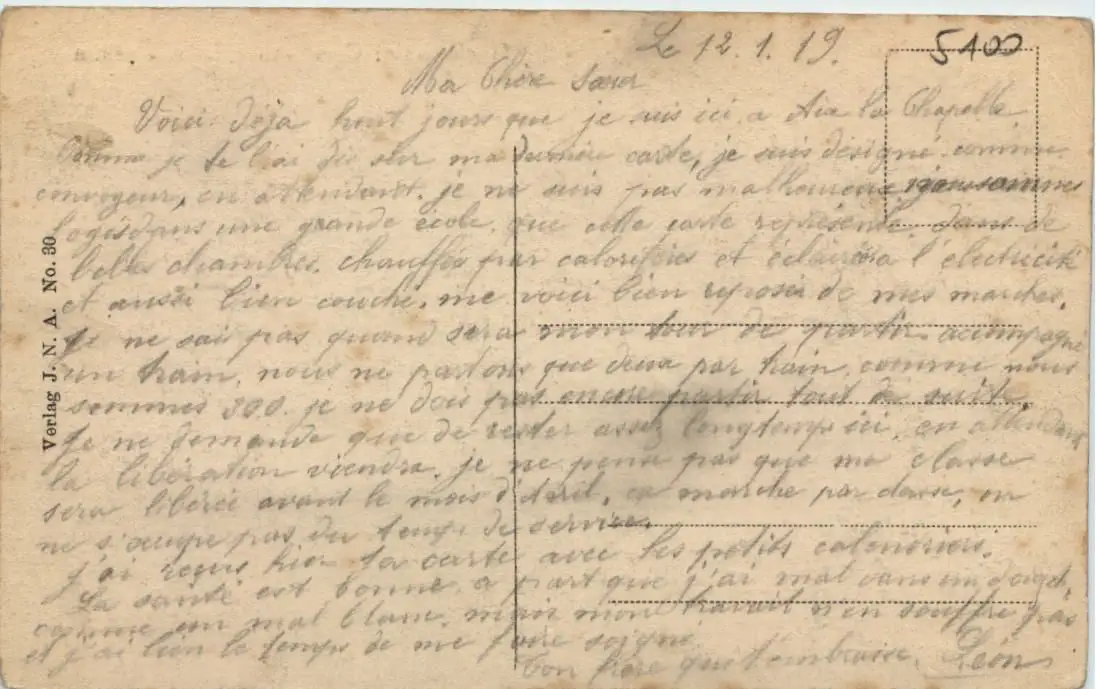 5100
Le 12.1.19.
Ma Chère Sœur
Voici déjà huit jours que je suis ici a Aix la Chapelle.
Comme je te l'ai dit sur ma dernière carte, je suis désigné comme
convoyeur, en attendant je ne suis pas malheureux nous sommes
logés dans une grande école, que cette carte représente. dans de
belles chambres, chauffées par calorifères et éclairées a l'électricité
et aussi bien couché, me voici bien reposé de mes marches.
Je ne sai pas quand sera mon tour de partir accompagné
un train, nous ne partons que deux par train, comme nous
sommes 300. je ne dois pas encore partir tout de suite.
Je ne demande que de rester assez longtemps ici, en attendant
la libération viendra. je ne pense pas que ma classe
sera libérée avant le mois d'Avril, ca marche par classe, on
ne s'occupe pas du temps de service.
j'ai reçus hier ta carte avec les petits calendriers.
La santé est bonne a part que j'ai mal dans un doigt,
comme un mal blanc, mais mon travail n'en souffre pas
et j'ai bien le temps de me faire soigné
Ton frère qui t'embrasse. Léon
Verlag J. N. A. No. 30